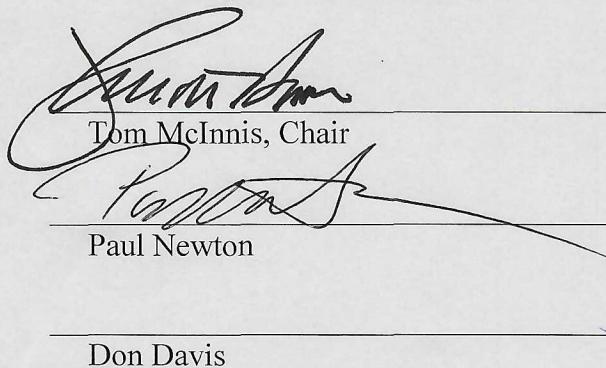 Tom McInnis, Chair
Paul Newton
Don Davis